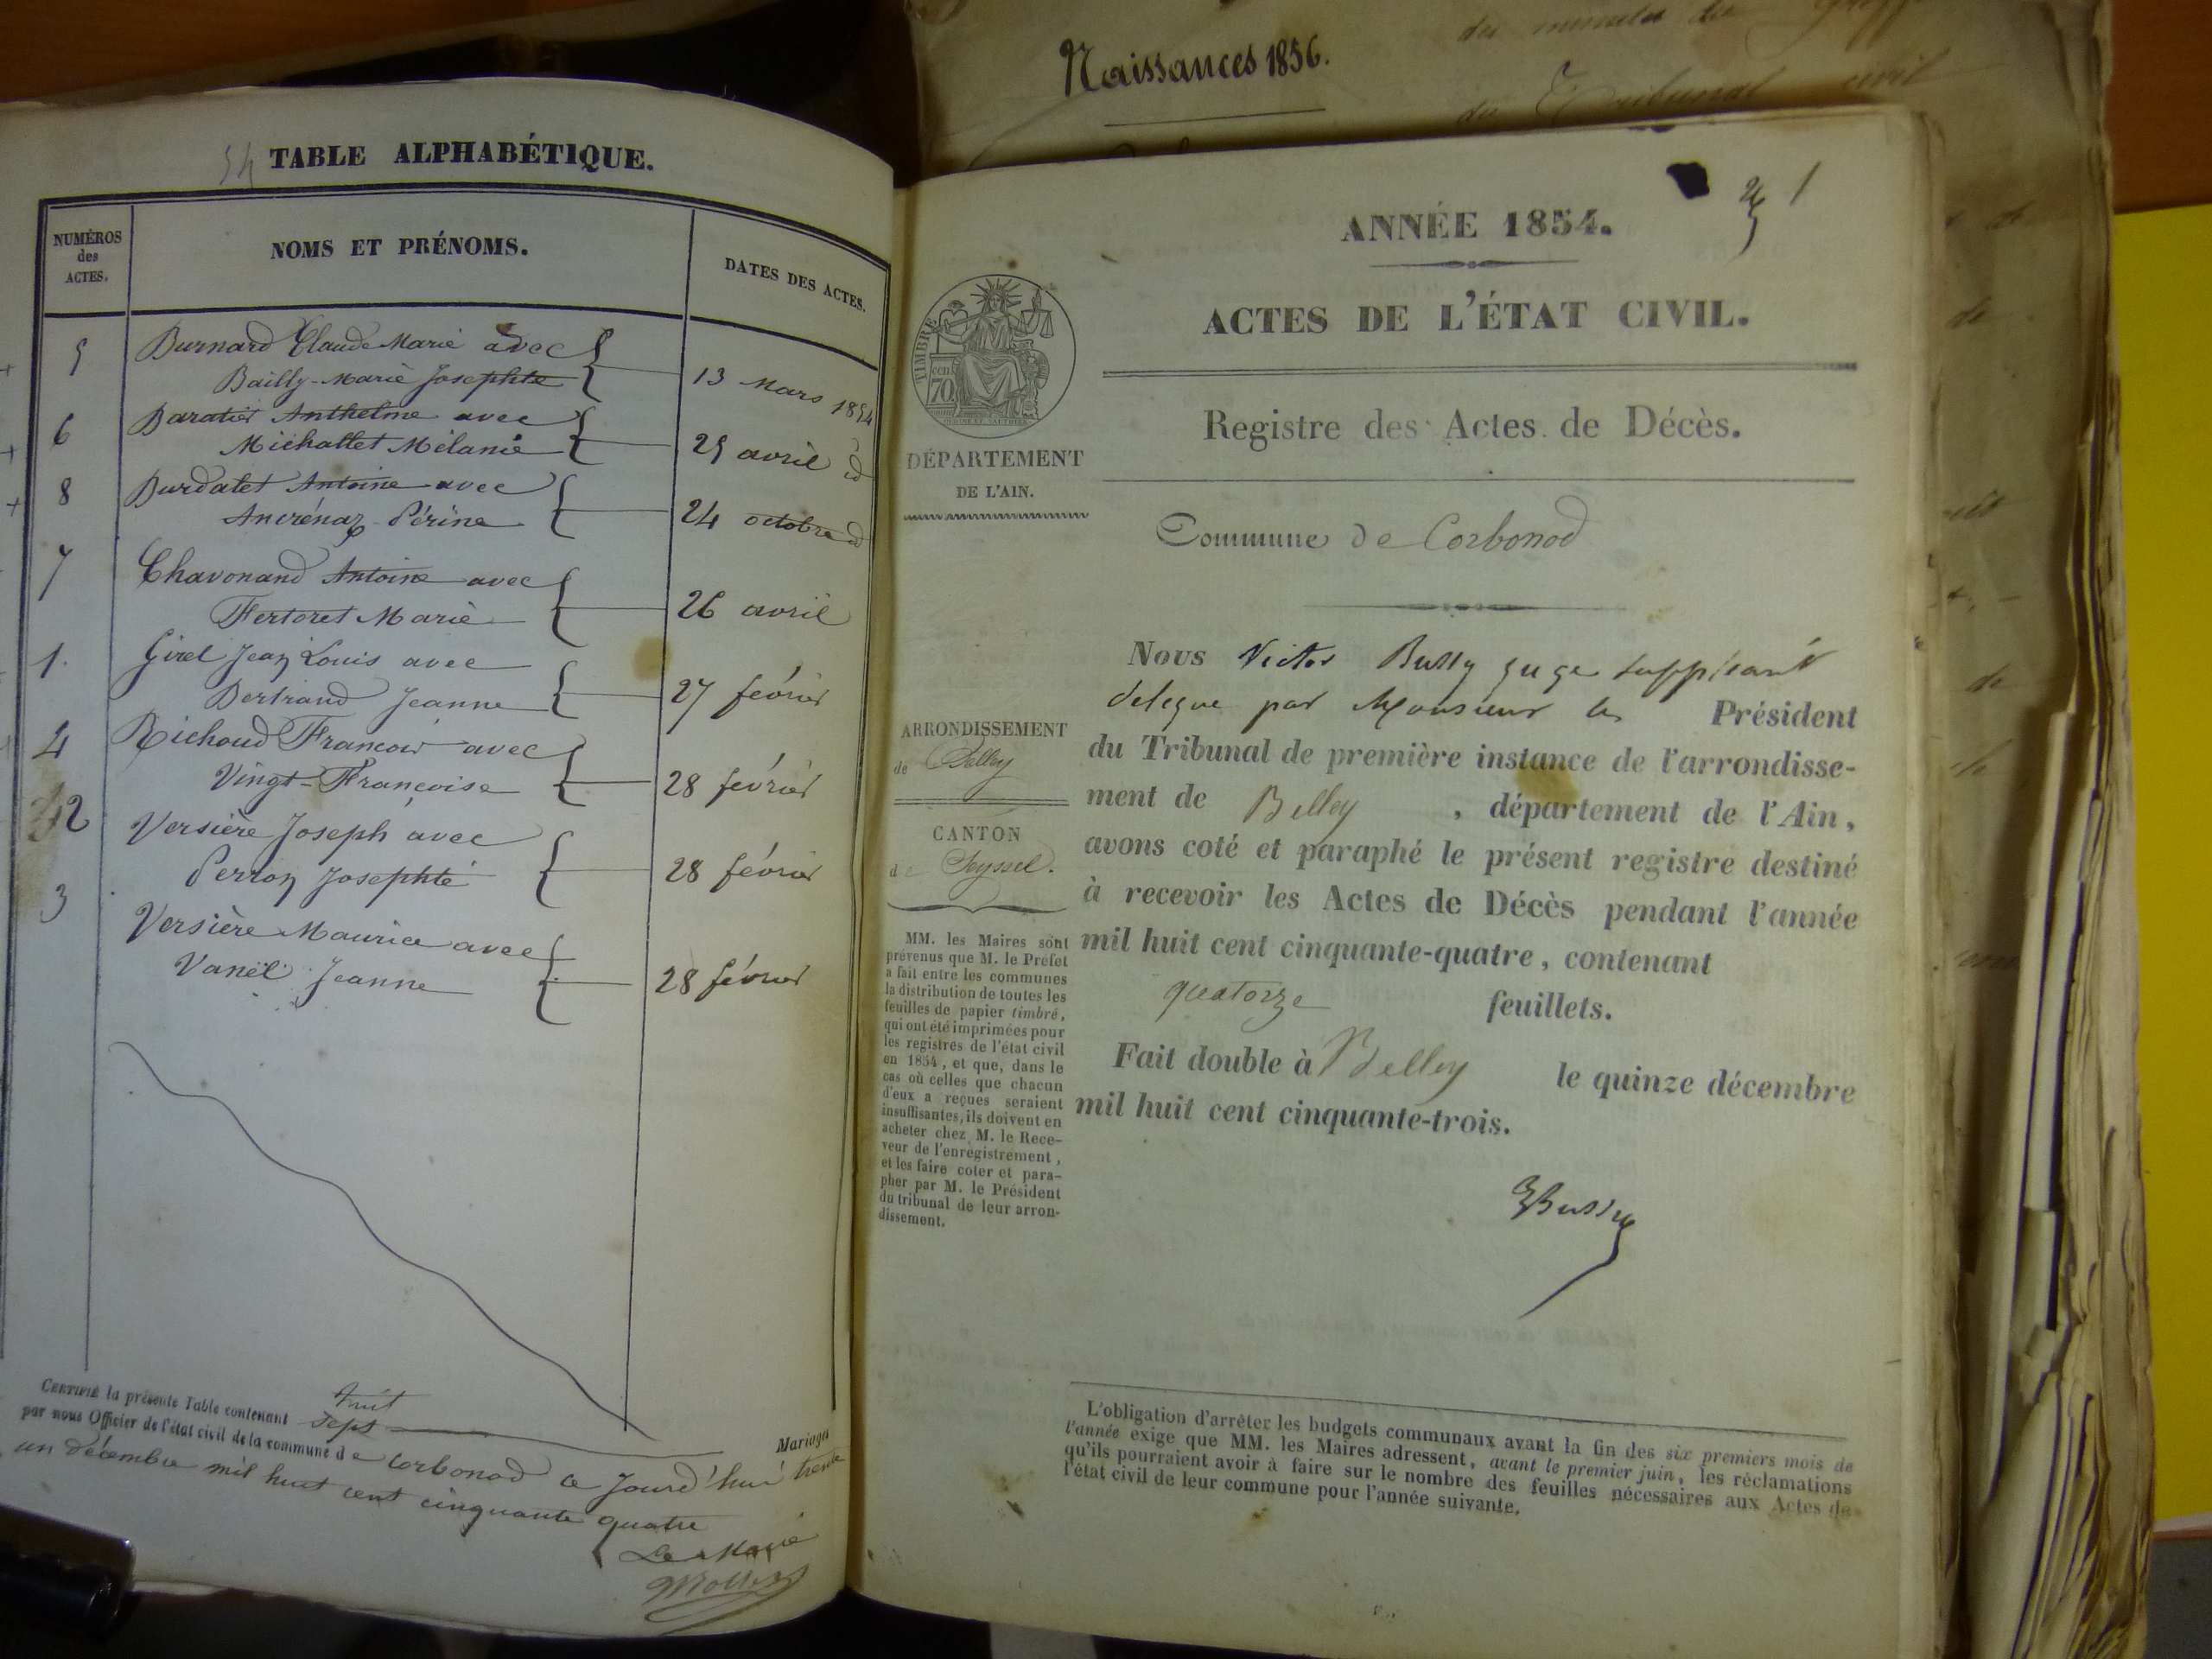 54 TABLE ALPHABÉTIQUE.
NUMÉROS
des
ACTES.
NOMS ET PRÉNOMS.
DATES DES ACTES.
5 Burnard Claude Marie avec
Bailly-Marie Josephte
13 Mars 1854
6 Baratier Anthelme avec
Michallet Mélanie
25 avril id
8 Burdalet Antoine avec
Ancrénaz Périne
24 octobre id
7 Chavonand Antoine avec
Fertoret Marie
26 avril
1. Girel Jean Louis avec
Bertrand Jeanne
27 février
4 Richoud François avec
Vingt-Françoise
28 février
2 Versière Joseph avec
Perron Josephte
28 février
3 Versière Maurice avec
Vanël Jeanne
28 février
CERTIFIÉ la présente Table contenant huit
sept Mariages
par nous Officier de l'état civil de la commune de Corbonod ce Jourd'hui trente
un décembre mil huit cent cinquante quatre
Le Maire
Naissances 1856.
des minutes du
du Tribunal civil
1
ANNÉE 1854.
ACTES DE L'ÉTAT CIVIL.
Registre des Actes de Décès.
Commune de Corbonod
TIMBRE
70 cen
DÉPARTEMENT
DE L'AIN.
ARRONDISSEMENT
de Belley
CANTON
de Seyssel.
MM. les Maires sont
prévenus que M. le Préfet
a fait entre les communes
la distribution de toutes les
feuilles de papier timbré,
qui ont été imprimées pour
les registres de l'état civil
en 1854, et que, dans le
cas où celles que chacun
d'eux a reçues seraient
insuffisantes, ils doivent en
acheter chez M. le Rece-
veur de l'enregistrement,
et les faire coter et para-
pher par M. le Président
du tribunal de leur arron-
dissement.
Nous Victor Bussy juge suppléant
delegue par Monsieur le Président
du Tribunal de première instance de l'arrondisse-
ment de Belley, département de l'Ain,
avons coté et paraphé le présent registre destiné
à recevoir les Actes de Décès pendant l'année
mil huit cent cinquante-quatre, contenant
quatorze feuillets.
Fait double à Belley le quinze décembre
mil huit cent cinquante-trois.
Bussy
L'obligation d'arrêter les budgets communaux avant la fin des six premiers mois de
l'année exige que MM. les Maires adressent, avant le premier juin, les réclamations
qu'ils pourraient avoir à faire sur le nombre des feuilles nécessaires aux Actes de
l'état civil de leur commune pour l'année suivante.